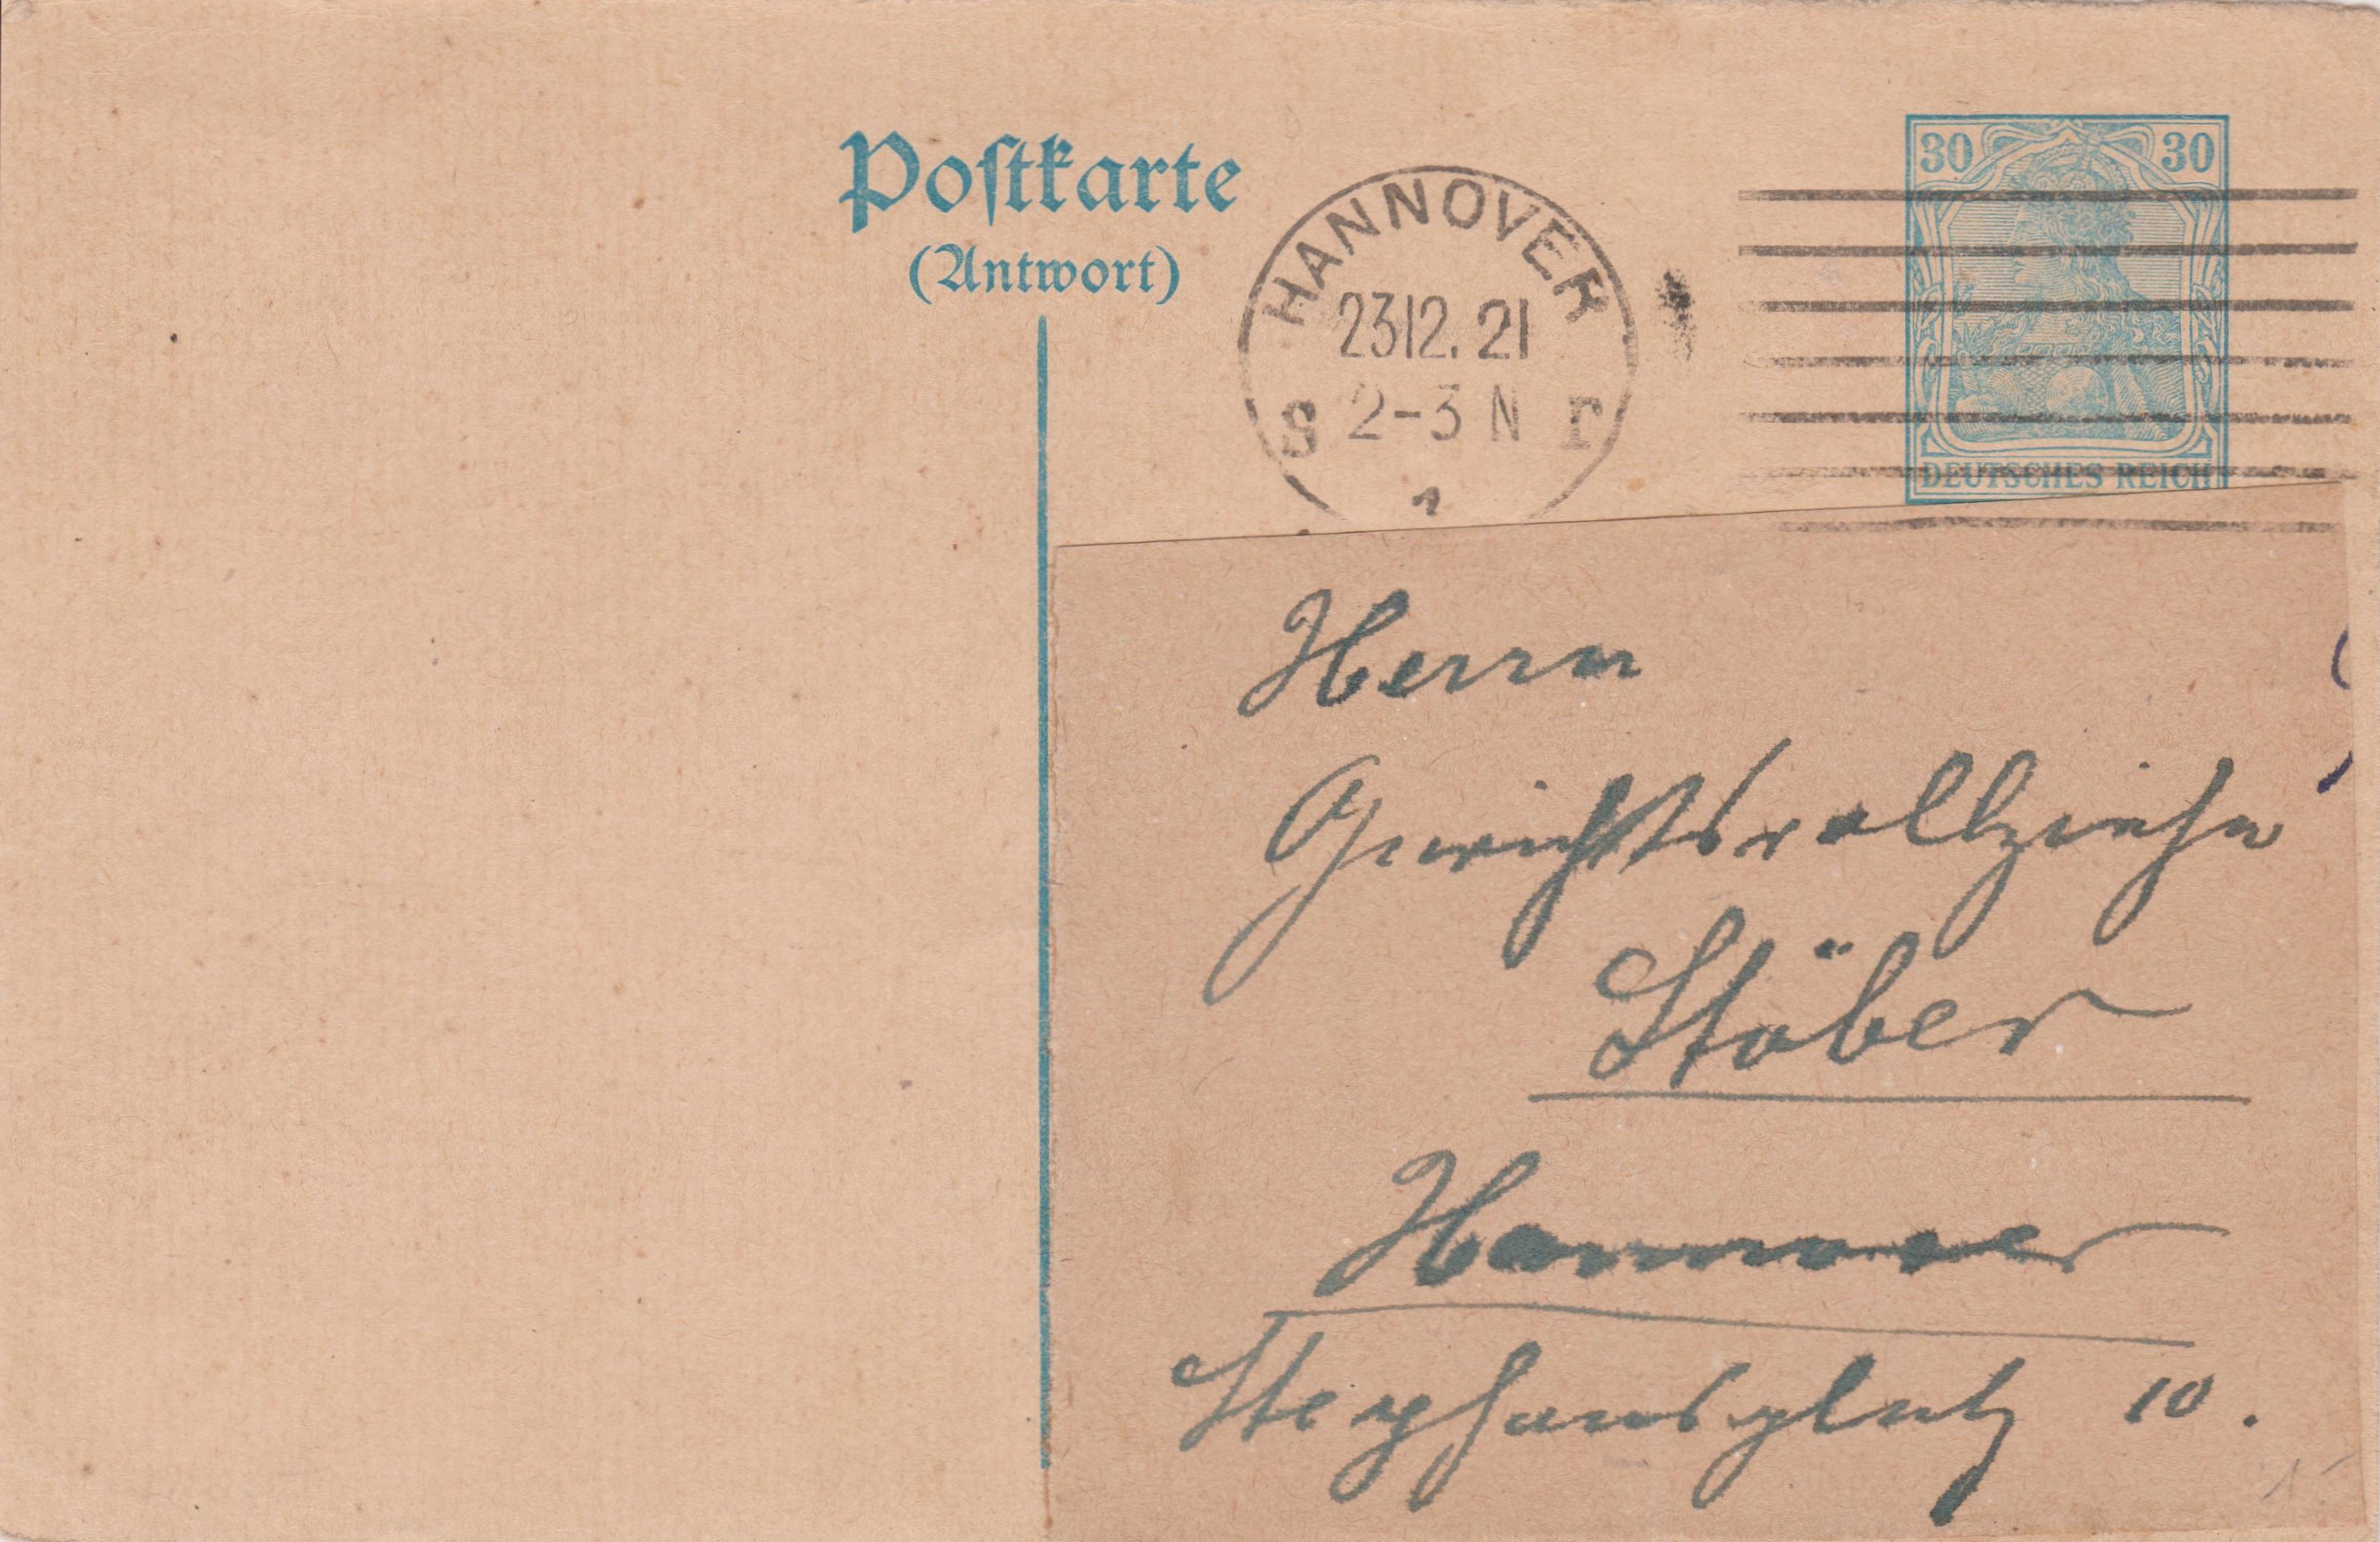 Poſtkarte
(Antwort)
HANNOVER
23 12. 21
S 2-3 N
1
30 30
DEUTSCHES REICH
Herrn
Gerichtsvollzieher
Stöber
Hannover
Stephansplatz 10.